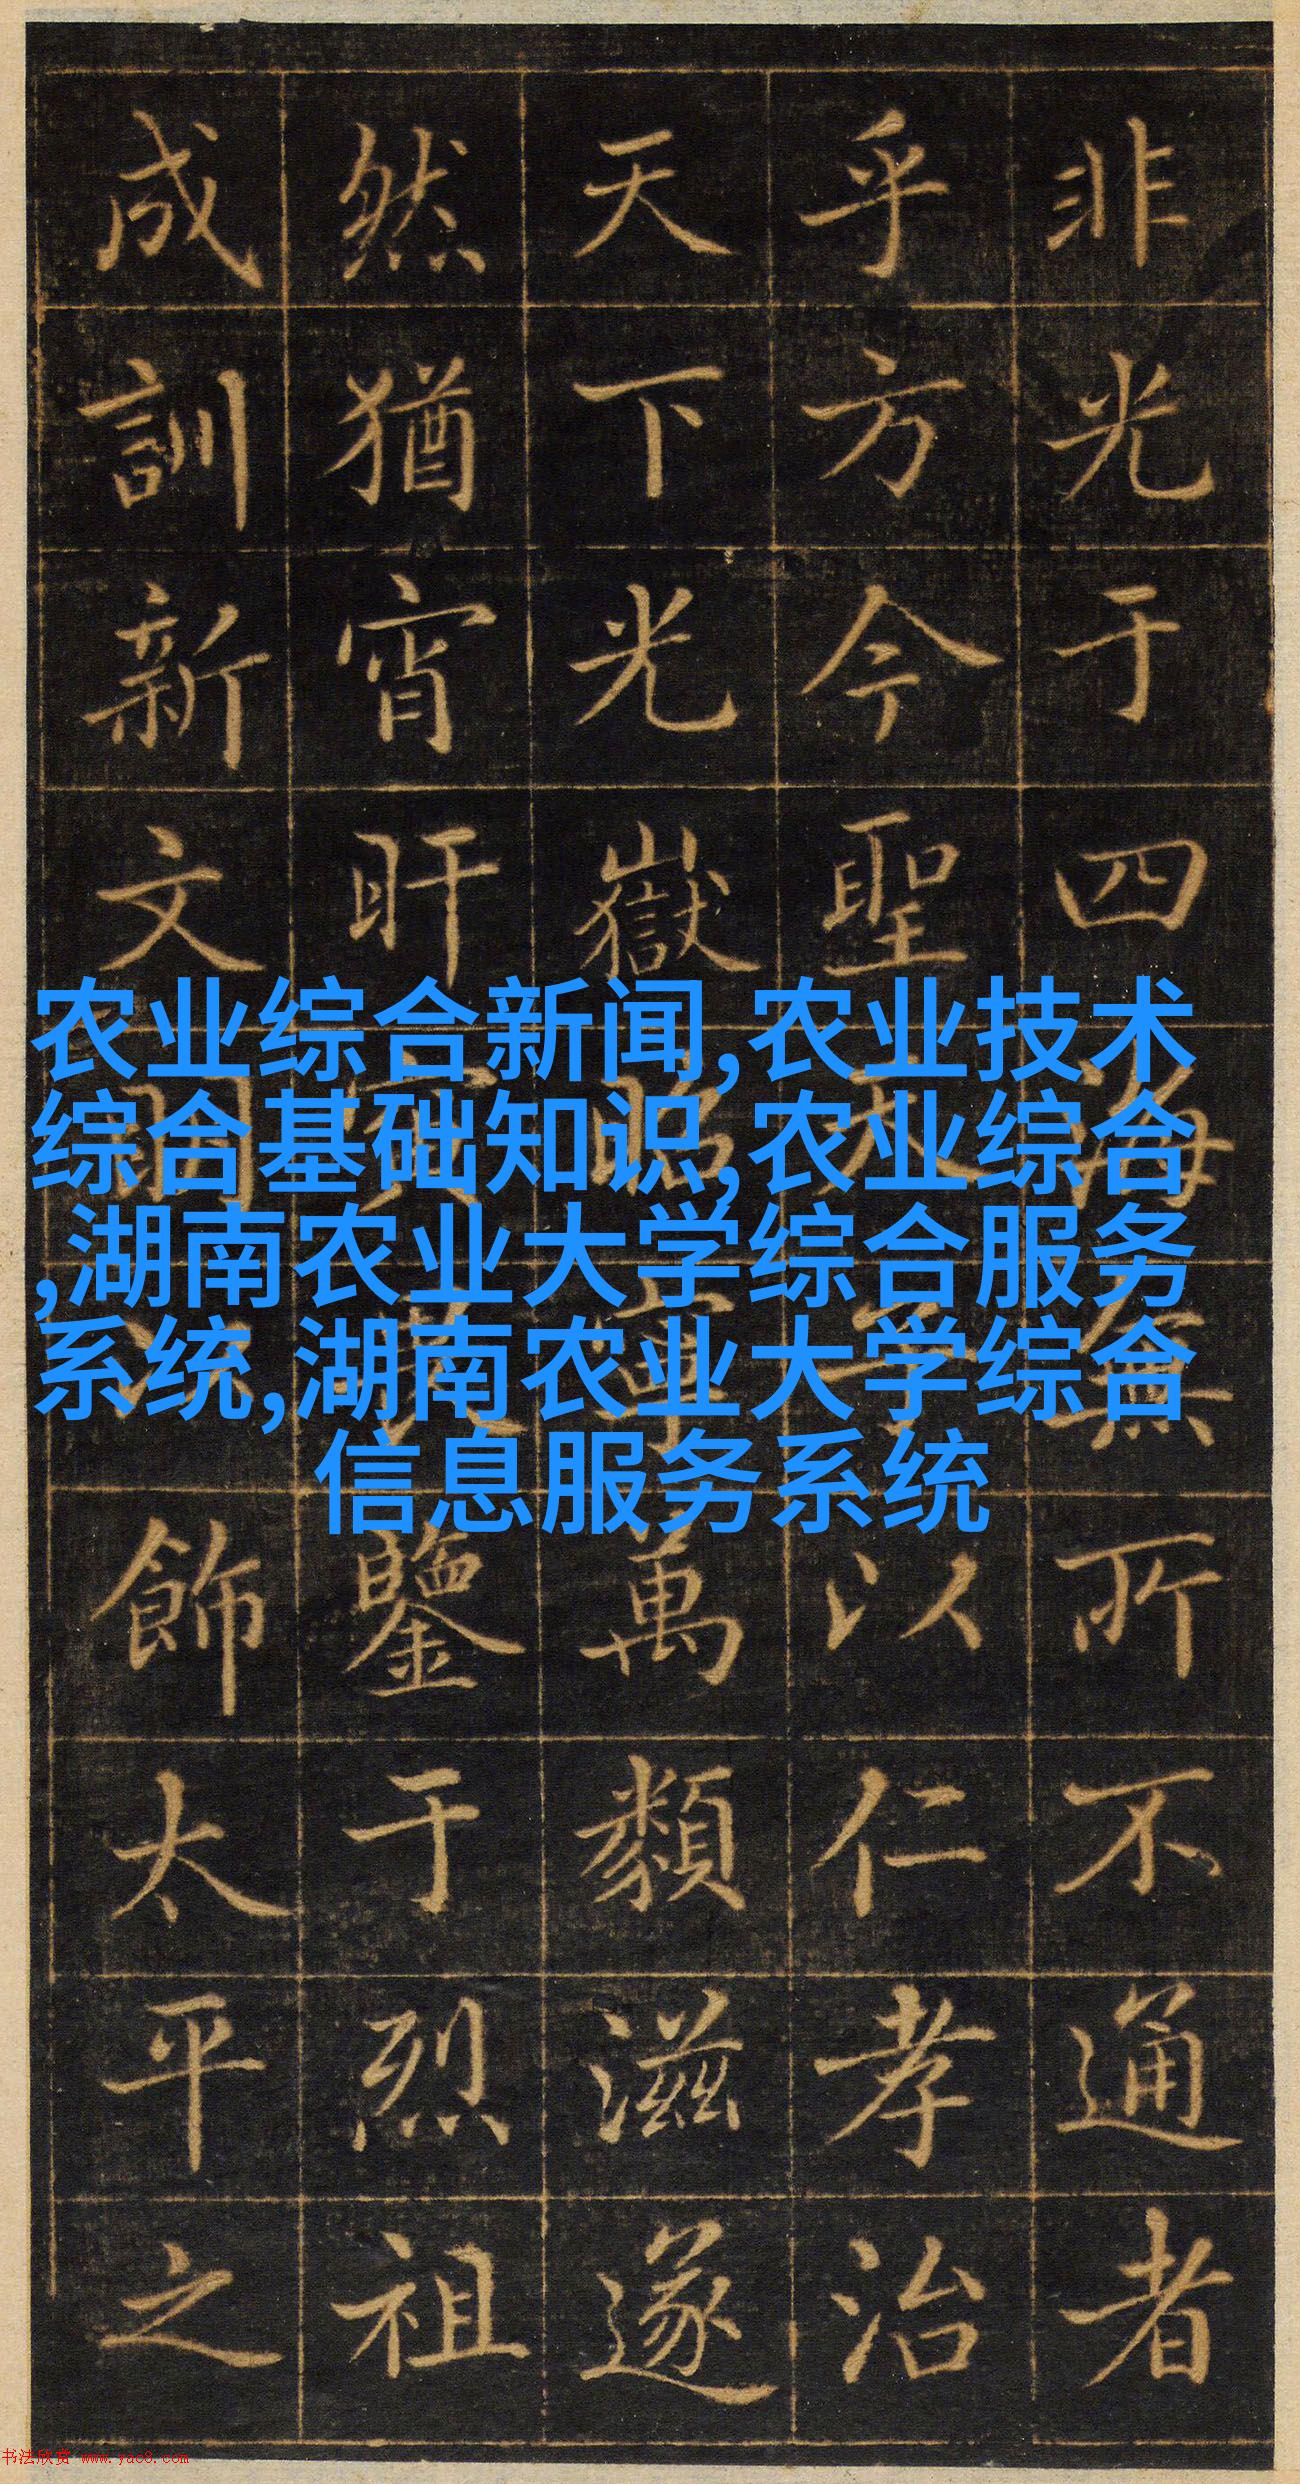 非光于四海無所不通者
乎方今聖天子以仁孝治
天下光嶽昭寧萬類滋遂
然猶宵旰鑒于烈祖
成訓新文明飾太平之
农业综合新闻,农业技术
综合基础知识,农业综合
,湖南农业大学综合服务
系统,湖南农业大学综合
信息服务系统
书法欣赏 www.yac8.com